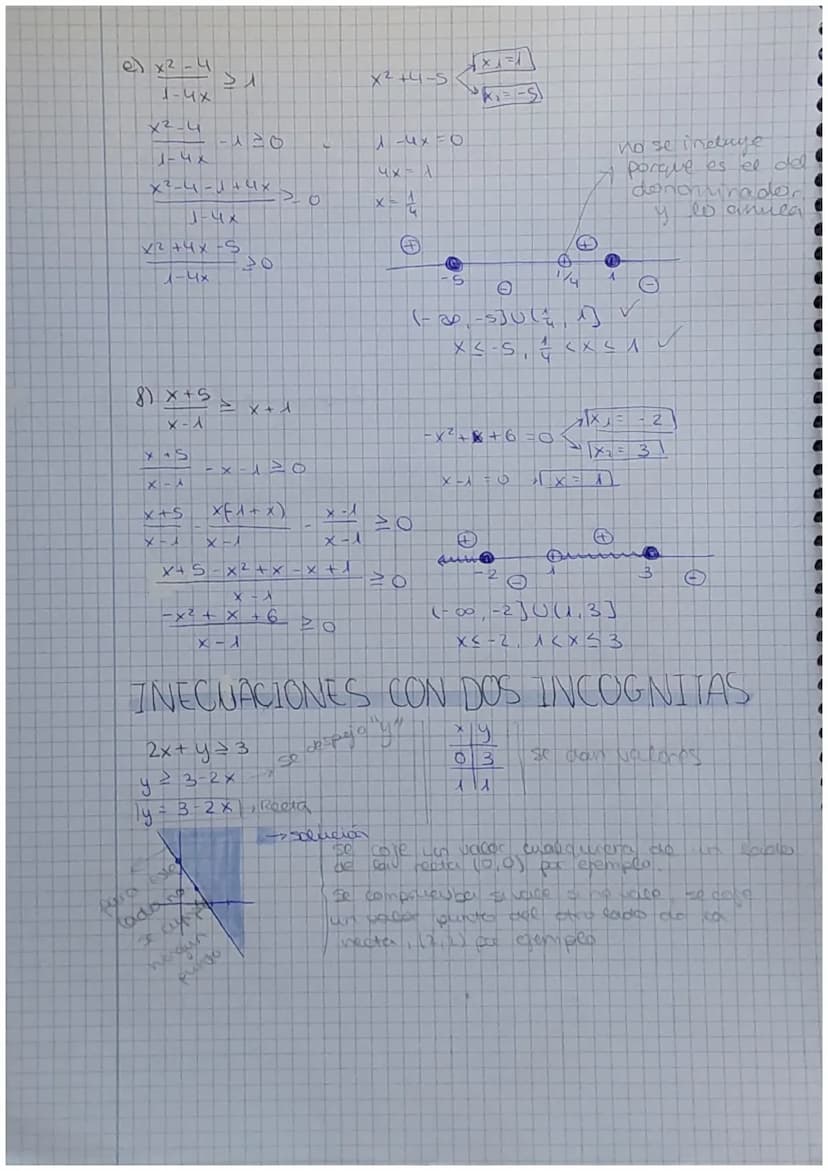 e) x² - 4 / 1 - 4x ≥ 1
x² + 4 - 5
x₁ = 1
x₂ = -5
x² - 4 / 1 - 4x - 1 ≥ 0
1 - 4x = 0
x² - 4 - 1 + 4x / 1 - 4x ≥ 0
4x = 1
x = 1/4
x² + 4x - 5 / 1 - 4x ≥ 0
no se incluye
porque es el del
denominador
y lo anula
+ - + -
-5 1/4 1
(-∞, -5] ∪ (1/4, 1] ✓
x ≤ -5, 1/4 < x ≤ 1 ✓
8) x + 5 / x - 1 ≥ x + 1
-x² + x + 6 = 0
x₁ = -2
x₂ = 3
x + 5 / x - 1 - x - 1 ≥ 0
x - 1 = 0 x = 1
x + 5 / x - 1 - x(-1 + x) / x - 1 - x - 1 / x - 1 ≥ 0
+ - + -
-2 1 3
x + 5 - x² + x - x + 1 / x - 1 ≥ 0
-x² + x + 6 / x - 1 ≥ 0
(-∞, -2] ∪ (1, 3]
x ≤ -2, 1 < x ≤ 3
INECUACIONES CON DOS INCOGNITAS
2x + y ≥ 3
y ≥ 3 - 2x → se despeja "y"
y = 3 - 2x, Recta
x | y
0 | 3
1 | 1
se dan valores
→ solución
se coje un valor cualquiera de un lado
de la recta (0,0) por ejemplo.
se comprueba si vale o no vale, se coje
un punto del otro lado de la
recta, (2,2) por ejemplo
para ese
lado no
se cumple
ningún
punto